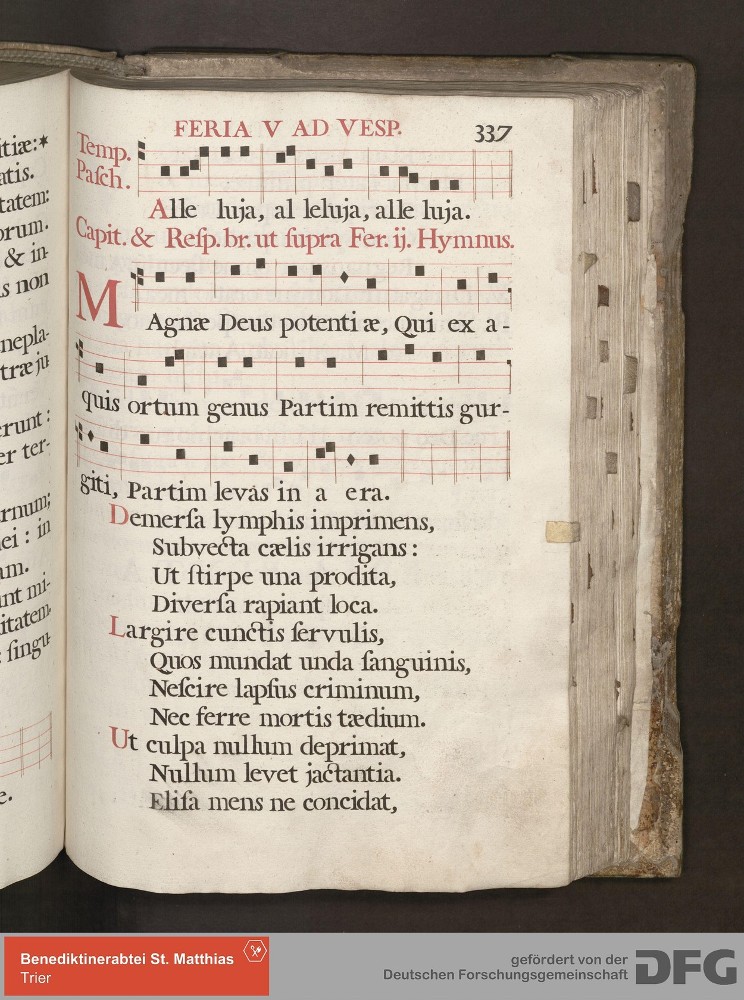 FERIA V AD VESP. 337
Temp.
Paſch.
Alle luja, al leluja, alle luja.
Capit. & Reſp. br. ut ſupra Fer. ij. Hymnus.
MAgnæ Deus potenti æ, Qui ex a-
quis ortum genus Partim remittis gur-
giti, Partim levas in a era.
Demerſa lymphis imprimens,
Subvecta cælis irrigans:
Ut ſtirpe una prodita,
Diverſa rapiant loca.
Largire cunctis ſervulis,
Quos mundat unda ſanguinis,
Neſcire lapſus criminum,
Nec ferre mortis tædium.
Ut culpa nullum deprimat,
Nullum levet jactantia.
Eliſa mens ne concidat,
itiæ:*
atis.
tatem:
orum.
& in-
s non
nepla-
træ ju
erunt:
er ter-
rnum;
ei: in
am.
unt mi-
itatem.
ſingu-
e.
Benediktinerabtei St. Matthias
Trier
gefördert von der
Deutschen Forschungsgemeinschaft
DFG